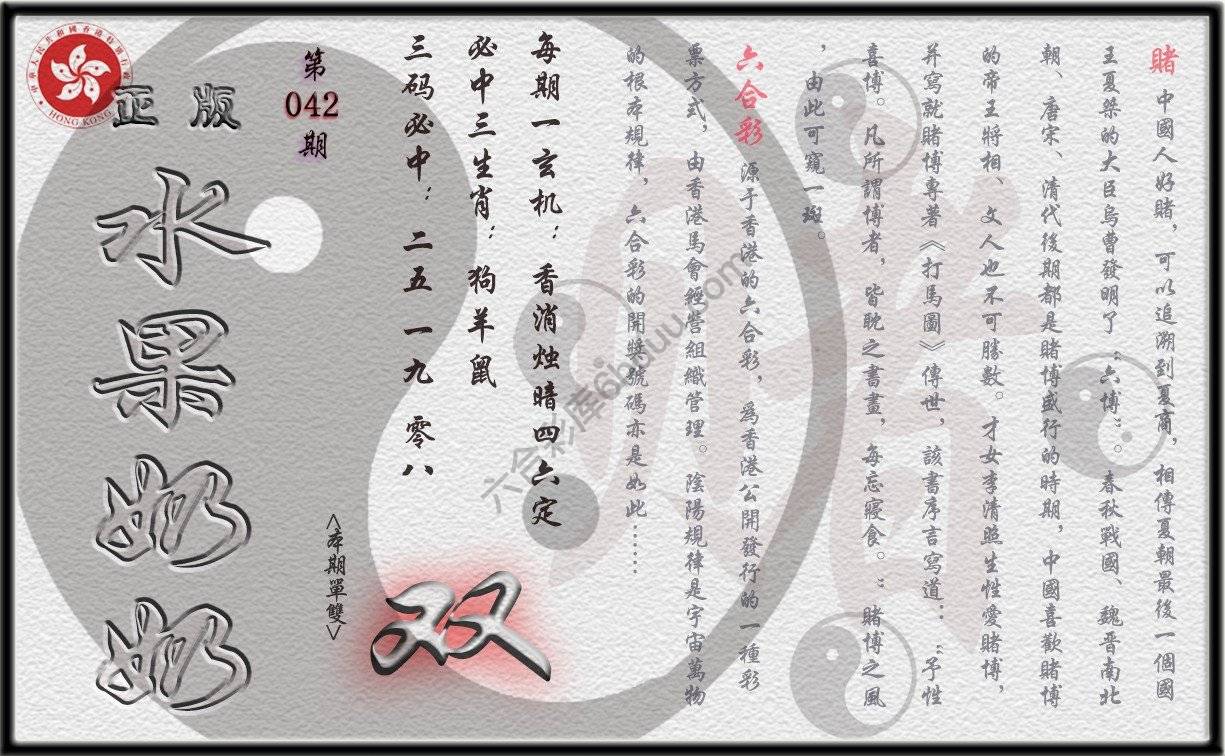 賭 中國人好賭，可以追溯到夏商，相傳夏朝最後一個國
王夏桀的大臣烏曹發明了“六博”。春秋戰國、魏晋南北
朝、唐宋、清代後期都是賭博盛行的時期，中國喜歡賭博
的帝王將相、文人也不可勝數。才女李清照生性愛賭博，
并寫就賭博專著《打馬圖》傳世，該書序言寫道：“予性
喜博。凡所謂博者，皆耽之書畫，每忘寢食。”賭博之風
，由此可窺一斑。
六合彩 源于香港的六合彩，爲香港公開發行的一種彩
票方式，由香港馬會經營組織管理。陰陽規律是宇宙萬物
的根本規律，六合彩的開獎號碼亦是如此……
每期一玄机：香消烛暗四六定
必中三生肖：狗羊鼠
三码必中：二五 一九 零八
第
042
期
<本期單雙>
双
正版
水果奶奶
中華人民共和國香港特別行政區
HONG KONG
六合彩库6huuu.com